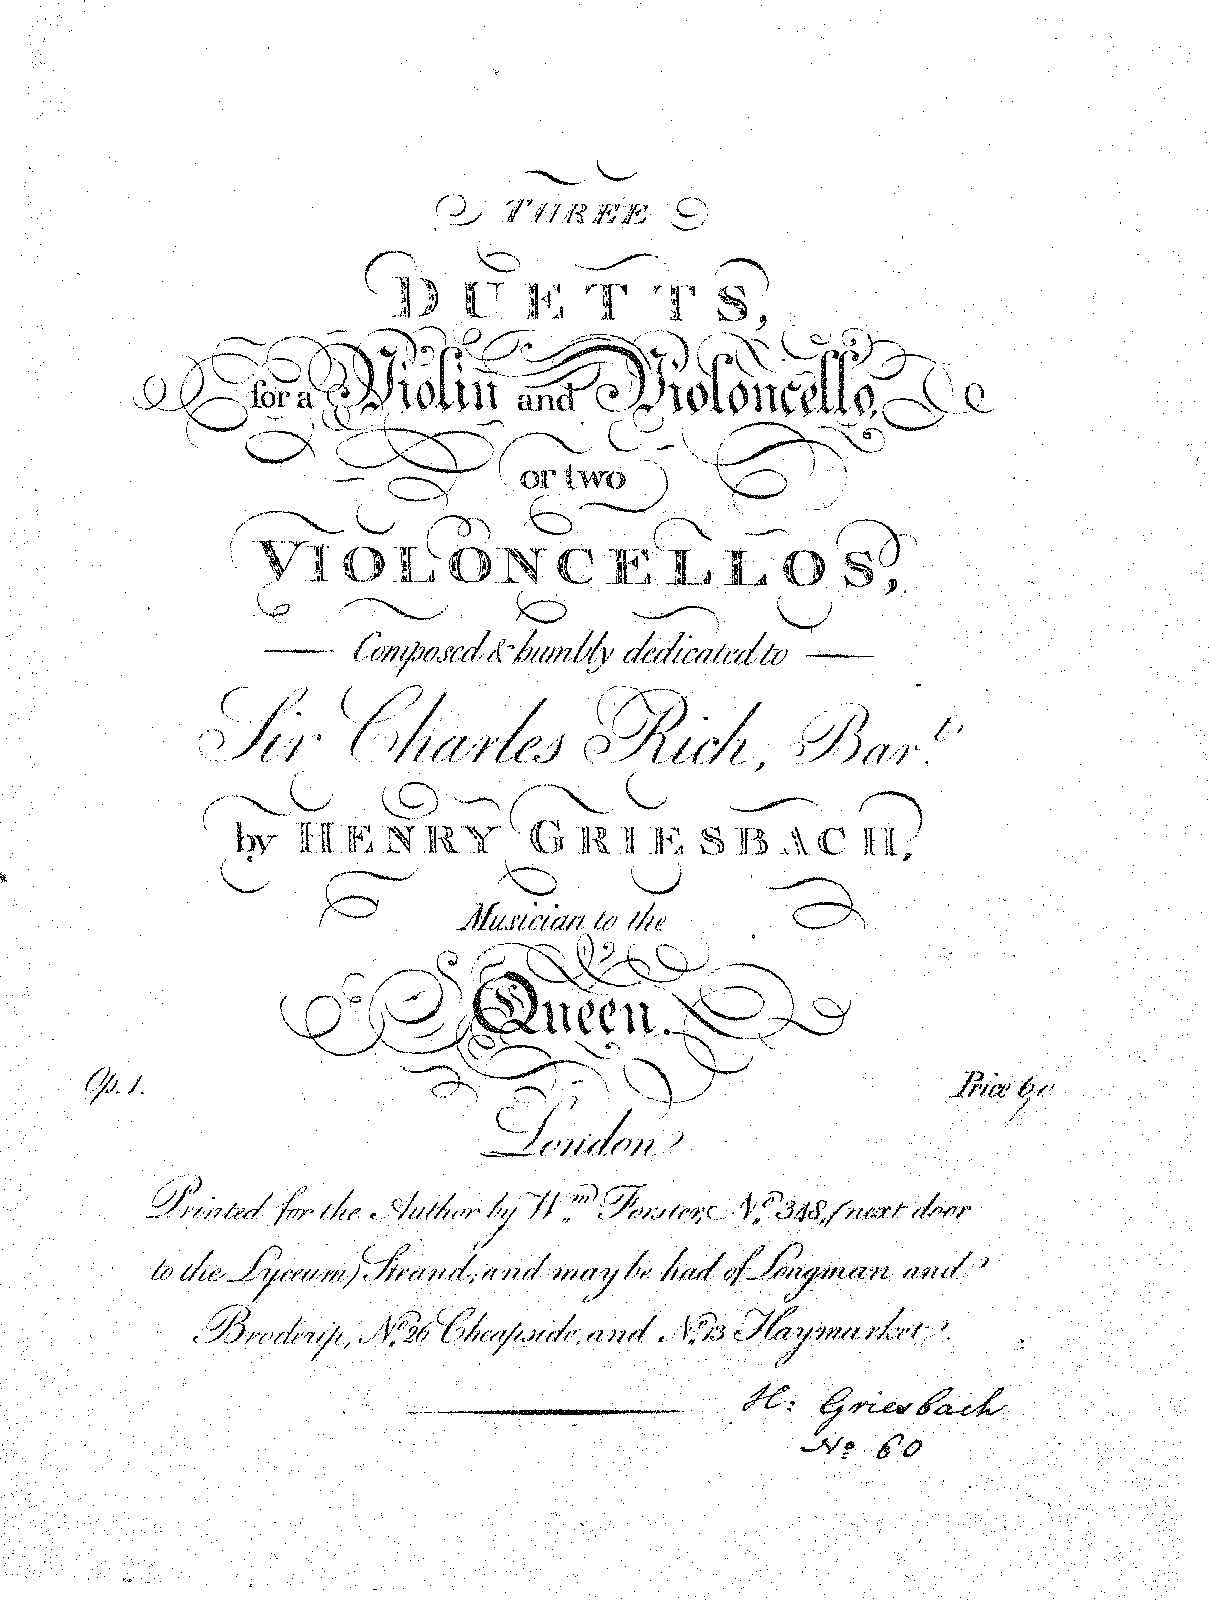 THREE
DUETTS,
for a Violin and Violoncello,
or two
VIOLONCELLOS,
Composed & humbly dedicated to
Sir Charles Rich, Bar.t
by HENRY GRIESBACH,
Musician to the
Queen.
Op. 1. Price 6/0
London
Printed for the Author by Wm Forster, No. 348, (next door
to the Lyceum) Strand, and may be had of Longman and
Broderip, No. 26 Cheapside, and No. 13 Haymarket.
H: Griesbach
No 60